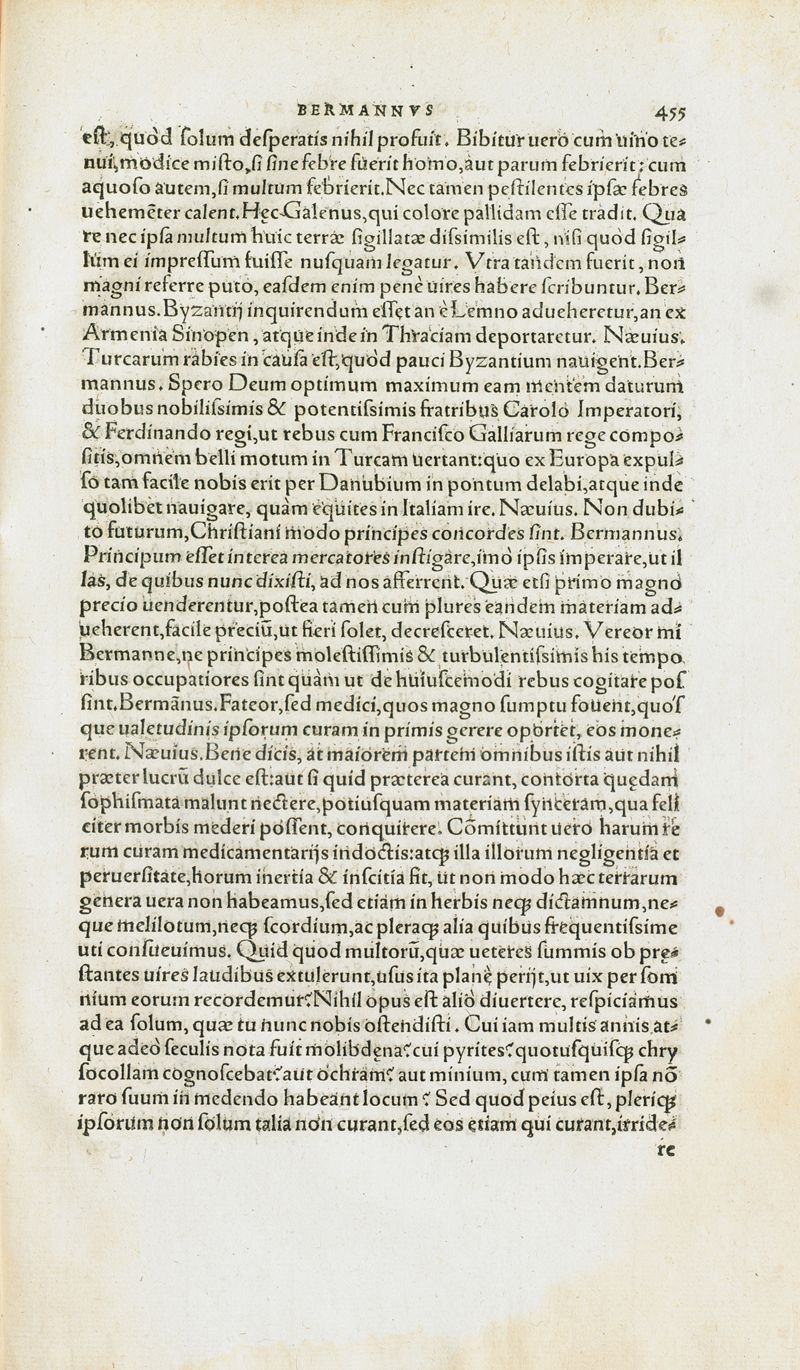 BERMANNVS 455
eſt, quòd ſolum deſperatis nihil profuit. Bibitur uerò cum uino te⸗
nui, modice miſto, ſi ſine febre fuerit homo, aut parum febrierit; cum
aquoſo autem, ſi multum febrierit. Nec tamen peſtilentes ipſæ febres
uehemēter calent. Hęc Galenus, qui colore pallidam eſſe tradit. Qua
re nec ipſa multum huic terræ ſigillatæ diſsimilis eſt, niſi quòd ſigil⸗
lum ei impreſſum fuiſſe nuſquam legatur. Vtra tandem fuerit, non
magni referre puto, eaſdem enim penè uires habere ſcribuntur. Ber⸗
mannus. Byzantij inquirendum eſſet an è Lemno adueheretur, an ex
Armenia Sinopen, atque inde in Thraciam deportaretur. Næuius.
Turcarum rabies in cauſa eſt, quòd pauci Byzantium nauigent. Ber⸗
mannus. Spero Deum optimum maximum eam mentem daturum
duobus nobiliſsimis & potentiſsimis fratribus Carolo Imperatori,
& Ferdinando regi, ut rebus cum Franciſco Galliarum rege compo⸗
ſitis, omnem belli motum in Turcam uertant: quo ex Europa expul⸗
ſo tam facile nobis erit per Danubium in pontum delabi, atque inde
quolibet nauigare, quàm equites in Italiam ire. Næuius. Non dubi⸗
to futurum, Chriſtiani modo principes concordes ſint. Bermannus.
Principum eſſet interea mercatores inſtigare, imò ipſis imperare, ut il
las, de quibus nunc dixiſti, ad nos afferrent. Quæ etſi primo magno
precio uenderentur, poſtea tamen cum plures eandem materiam ad⸗
ueherent, facile preciū, ut fieri ſolet, decreſceret. Næuius. Vereor mi
Bermanne, ne principes moleſtiſſimis & turbulentiſsimis his tempo
ribus occupatiores ſint quàm ut de huiuſcemodi rebus cogitare poſ
ſint. Bermānus. Fateor, ſed medici, quos magno ſumptu fouent, quoſ
que ualetudinis ipſorum curam in primis gerere oportet, eos mone⸗
rent. Næuius. Bene dicis, at maiorem partem omnibus iſtis aut nihil
præter lucrū dulce eſt: aut ſi quid præterea curant, contorta quędam
ſophiſmata malunt nectere, potiuſquam materiam ſynceram, qua feli
citer morbis mederi poſſent, conquirere. Cōmittunt uero harum re
rum curam medicamentarijs indoctis: atq; illa illorum negligentia et
peruerſitate, horum inertia & inſcitia fit, ut non modo hæc terrarum
genera uera non habeamus, ſed etiam in herbis neq; dictamnum, ne⸗
que melilotum, neq; ſcordium, ac pleraq; alia quibus frequentiſsime
uti conſueuimus. Quid quod multorū, quæ ueteres ſummis ob prę⸗
ſtantes uires laudibus extulerunt, uſus ita planè perijt, ut uix per ſom
nium eorum recordemur? Nihil opus eſt aliò diuertere, reſpiciamus
ad ea ſolum, quæ tu nunc nobis oſtendiſti. Cui iam multis annis at⸗
que adeò ſeculis nota fuit molibdęna? cui pyrites? quotuſquiſq; chry
ſocollam cognoſcebat? aut ochram? aut minium, cum tamen ipſa nō
raro ſuum in medendo habeant locum? Sed quod peius eſt, pleriq;
ipſorum non ſolum talia non curant, ſed eos etiam qui curant, irride⸗
re